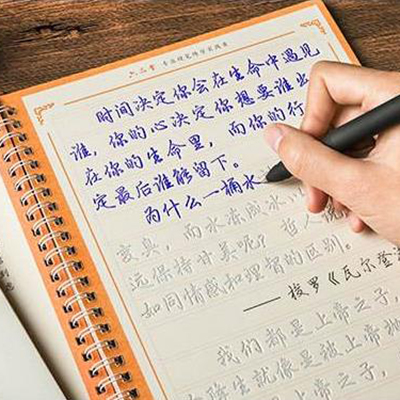 六品堂
时间决定你会在生命中遇见
谁，你的心决定你想要谁出
在你的生命里，而你的行
定最后谁能留下。
为什么一桶水
变臭，而水冻成冰
远保持甘美呢？哲人说
如同情感和理智的区别。
——梭罗《瓦尔登
我们都是上帝之子，
降生就像是被上帝抛